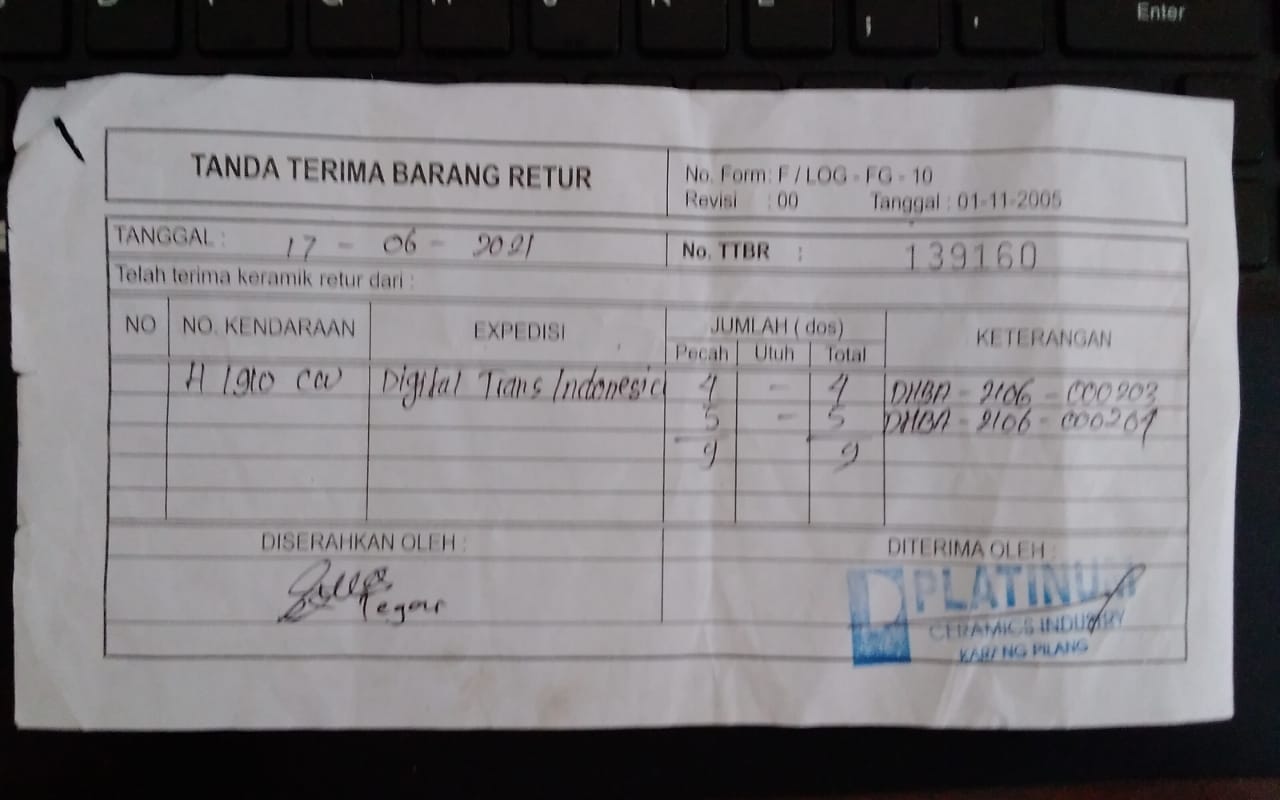 Enter
TANDA TERIMA BARANG RETUR
No. Form: F / LOG - FG - 10
Revisi : 00 Tanggal : 01-11-2005
TANGGAL : 17 - 06 - 2021
No. TTBR : 139160
Telah terima keramik retur dari :
NO NO. KENDARAAN EXPEDISI JUMLAH ( dos) KETERANGAN
Pecah Utuh Total
H 1910 CW Digital Trans Indonesia 4 - 4 DHBA - 2106 - 000203
5 - 5 DHBA - 2106 - 000204
9 9
DISERAHKAN OLEH :
DITERIMA OLEH :
Tegar
PLATINUM
CERAMICS INDUSTRY
KARANG PILANG